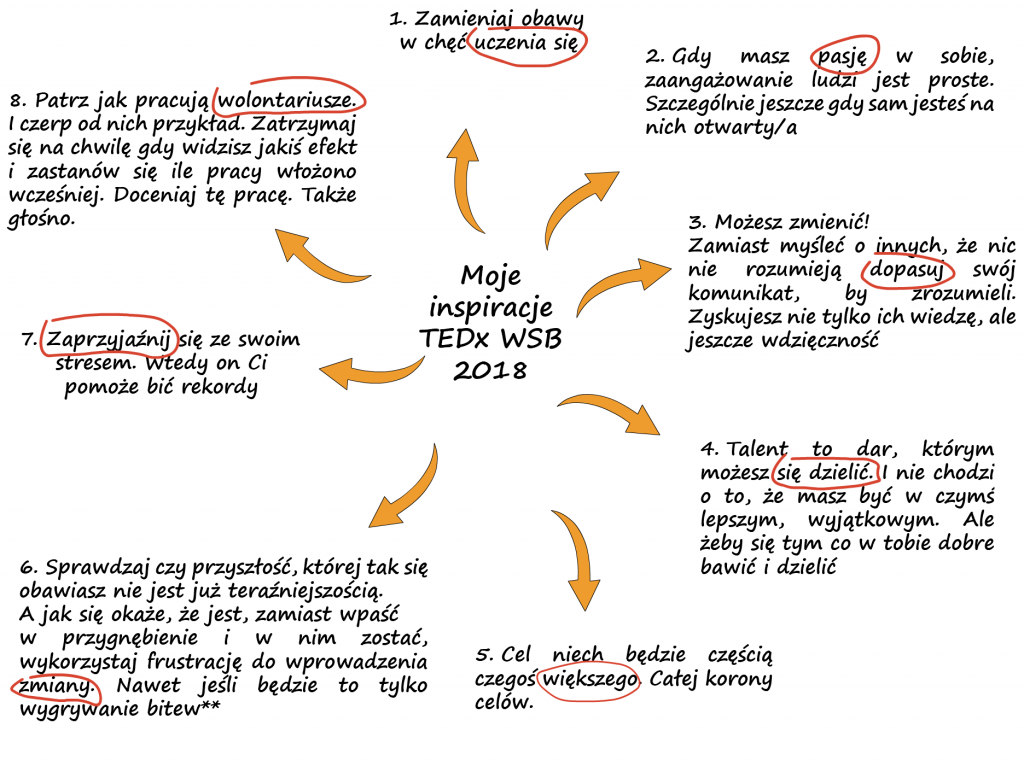 Moje
inspiracje
TEDx WSB
2018
1. Zamieniaj obawy
w chęć uczenia się
2. Gdy masz pasję w sobie,
zaangażowanie ludzi jest proste.
Szczególnie jeszcze gdy sam jesteś na
nich otwarty/a
3. Możesz zmienić!
Zamiast myśleć o innych, że nic
nie rozumieją dopasuj swój
komunikat, by zrozumieli.
Zyskujesz nie tylko ich wiedzę, ale
jeszcze wdzięczność
4. Talent to dar, którym
możesz się dzielić. I nie chodzi
o to, że masz być w czymś
lepszym, wyjątkowym. Ale
żeby się tym co w tobie dobre
bawić i dzielić
5. Cel niech będzie częścią
czegoś większego. Całej korony
celów.
6. Sprawdzaj czy przyszłość, której tak się
obawiasz nie jest już teraźniejszością.
A jak się okaże, że jest, zamiast wpaść
w przygnębienie i w nim zostać,
wykorzystaj frustrację do wprowadzenia
zmiany. Nawet jeśli będzie to tylko
wygrywanie bitew**
7. Zaprzyjaźnij się ze swoim
stresem. Wtedy on Ci
pomoże bić rekordy
8. Patrz jak pracują wolontariusze.
I czerp od nich przykład. Zatrzymaj
się na chwilę gdy widzisz jakiś efekt
i zastanów się ile pracy włożono
wcześniej. Doceniaj tę pracę. Także
głośno.